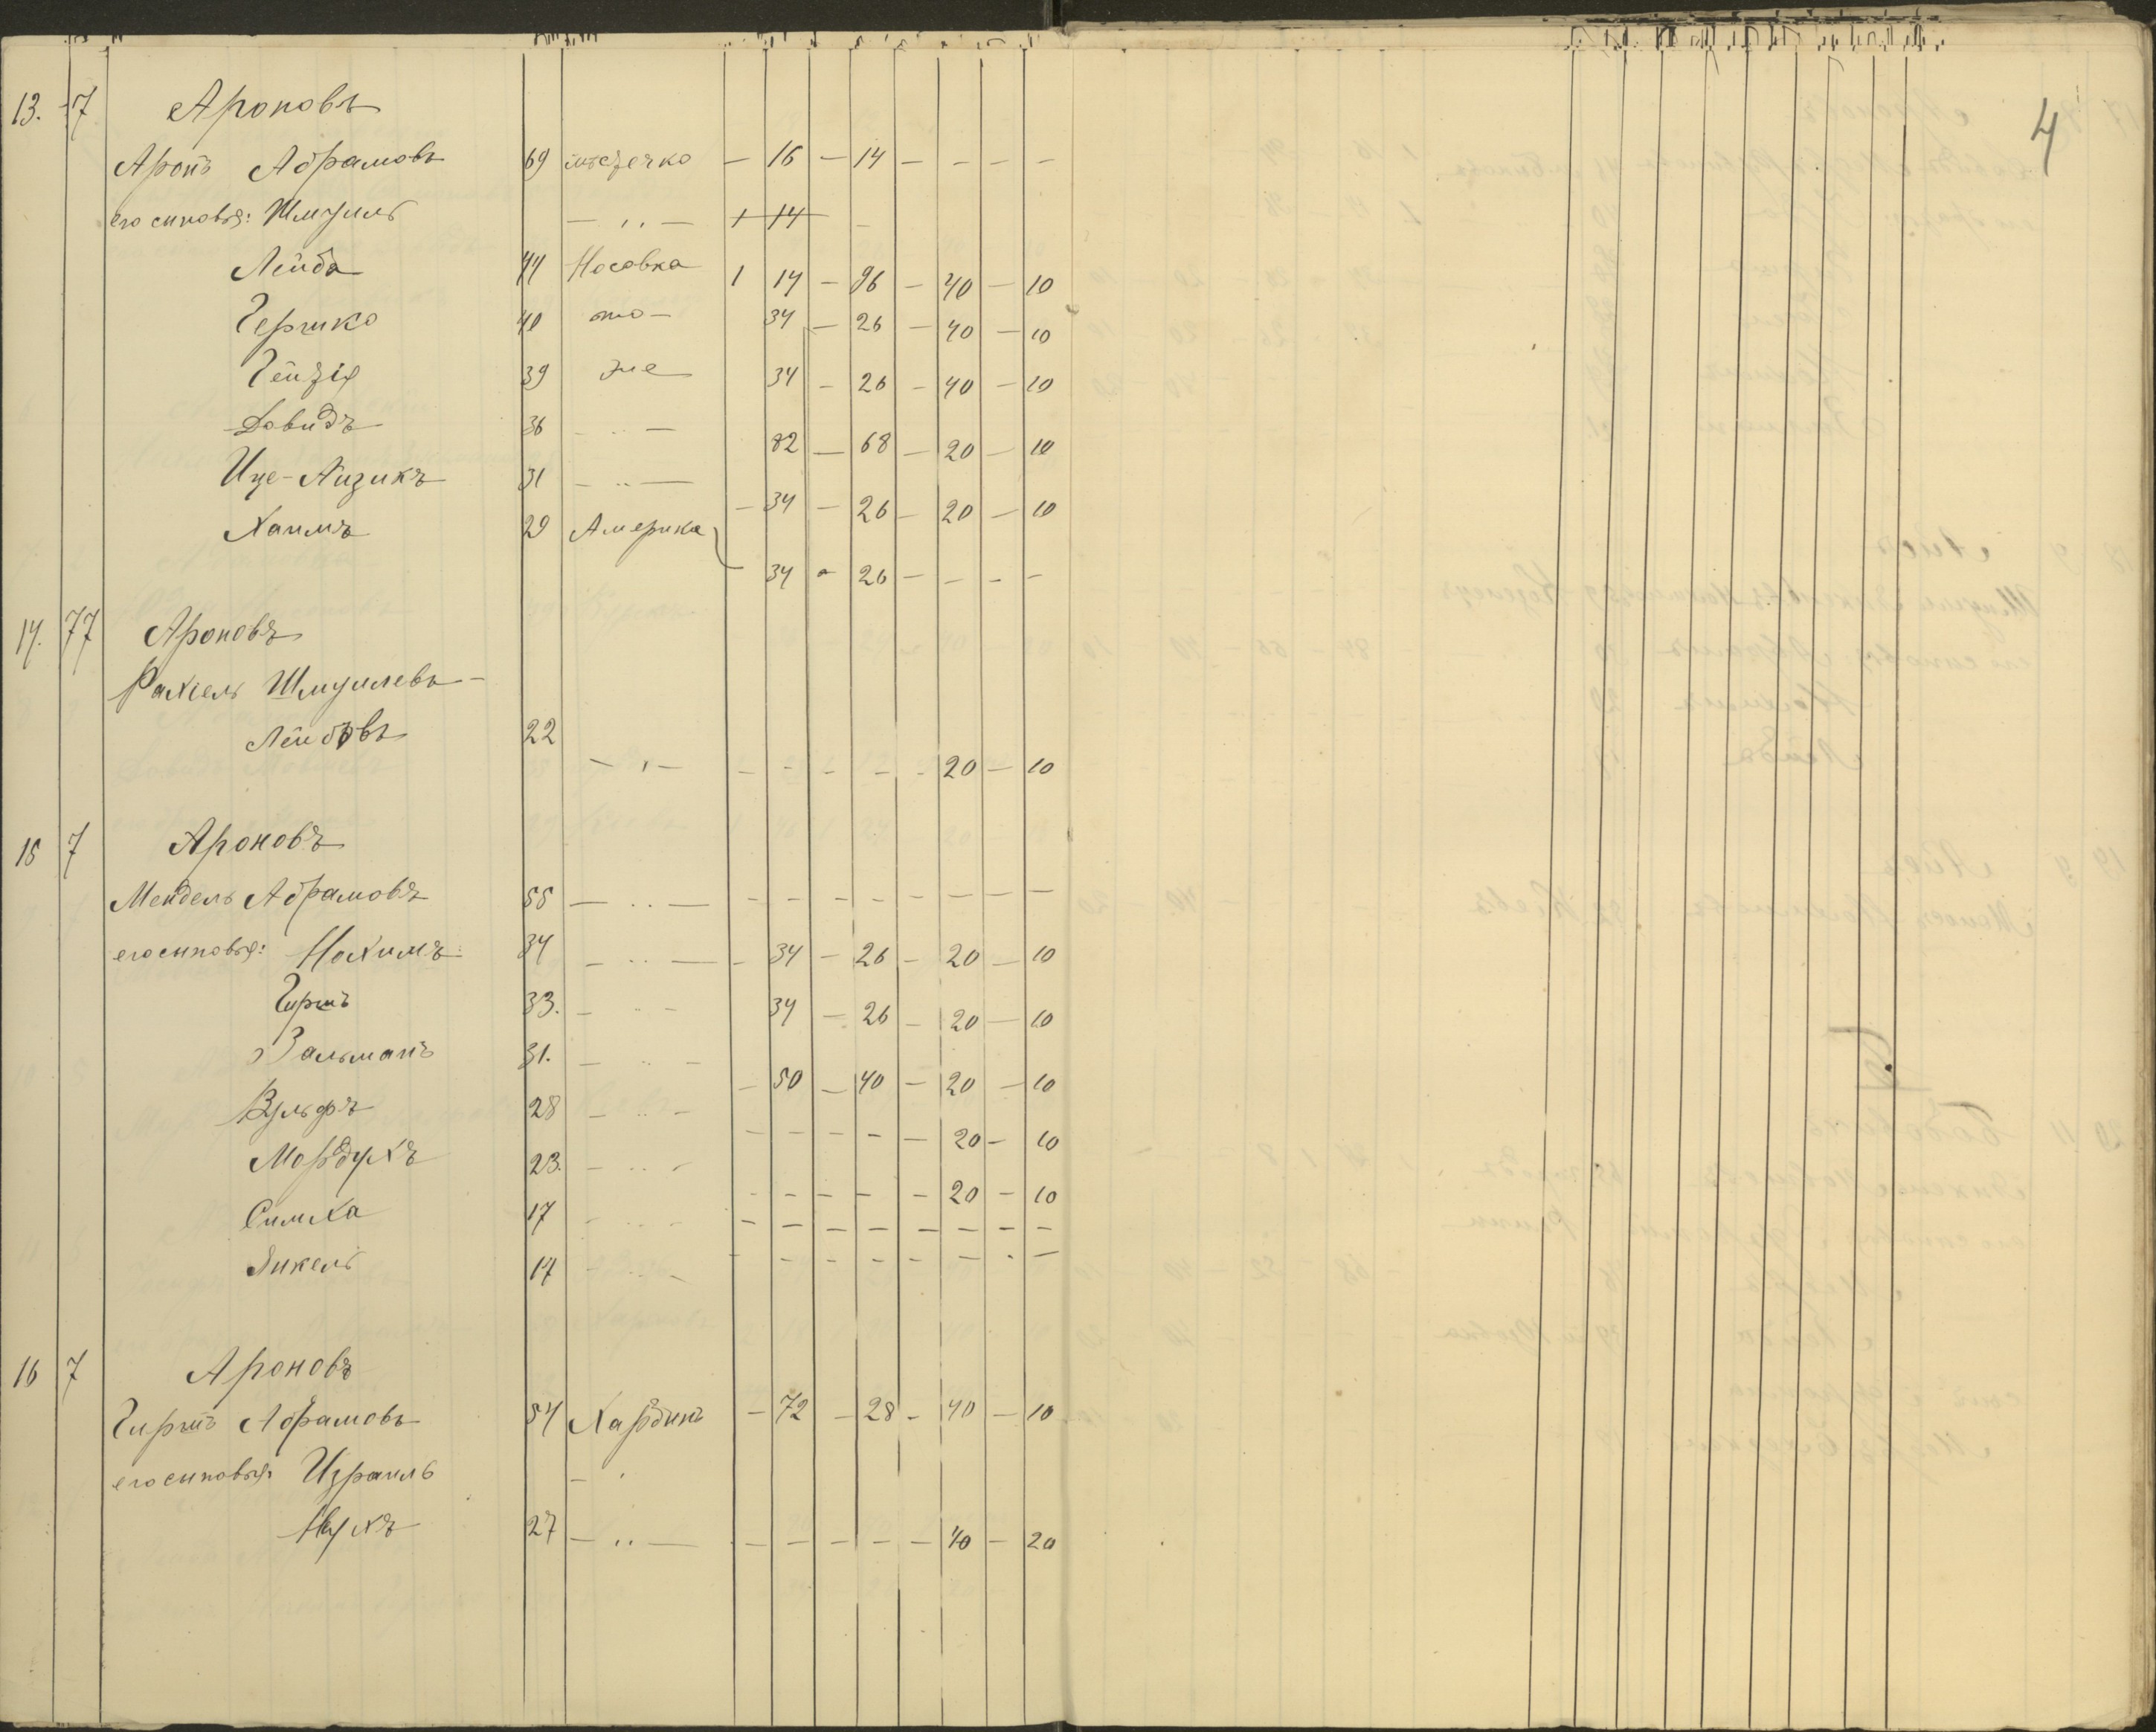 4
13. 7 Ароновъ
Аронъ Абрамовъ 69 мѣстечко — 16 — 14 — — — —
его сыновья: Шмуиль — „ — 1 14 —
Лейба 44 Носовка 1 14 — 96 — 40 — 10
Гершко 40 то — 34 — 26 — 40 — 10
Гейзія 39 же 34 — 26 — 40 — 10
Довидъ 36 — „ — 82 — 68 — 20 — 10
Ице-Айзикъ 31 — „ — — 34 — 26 — 20 — 10
Хаимъ 29 Америка 34 — 26 — — — —
14. 77 Ароновъ
Рахіель Шмуилевъ —
Лейбовъ 22 — „ — — — — — — 20 — 10
15 7 Ароновъ
Мендель Абрамовъ 55 — „ — — — — — — — — —
его сыновья: Нохимъ 34 — „ — — 34 — 26 — 20 — 10
Гиршъ 33. — „ — 34 — 26 — 20 — 10
Зальманъ 31. — „ — — 50 — 40 — 20 — 10
Вульфъ 28 — „ — — — — — — 20 — 10
Мордухъ 23. — „ — — — — — — 20 — 10
Симха 17 — „ — — — — — — — — —
Янкель 17 — „ — — — — — — — — —
16 7 Ароновъ
Гиршъ Абрамовъ 54 Харбинъ — 72 — 28 — 40 — 10
его сыновья: Израиль — „
Нухъ 27 — „ — — — — — — 40 — 20